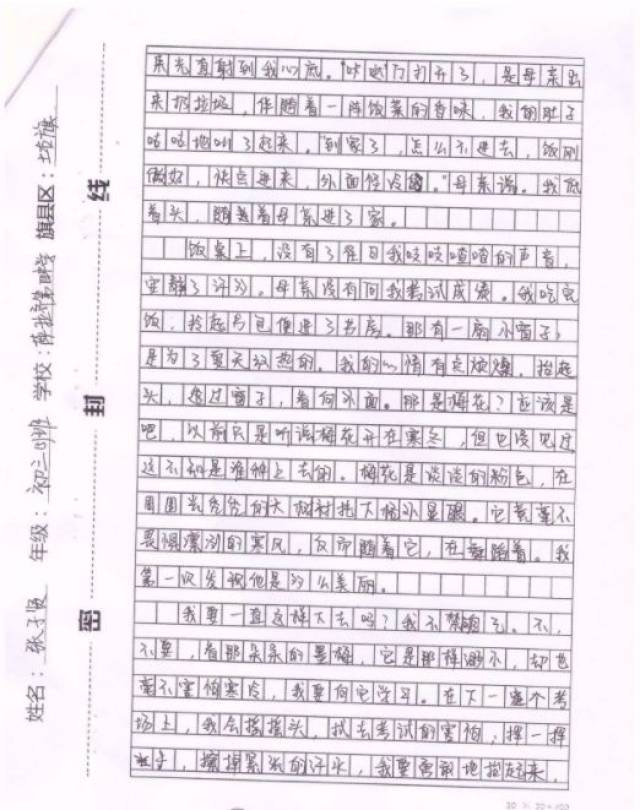 来光直射到我心底。"咔哒"门打开了,是母亲出
来扔垃圾,伴随着一阵饭菜的香味,我的肚子
咕咕地叫了起来。"到家了,怎么不进去,饭刚
做好,快点进来,外面怪冷的。"母亲说。我低
着头,随着母亲进了家。
饭桌上,没有了往日我吱吱喳喳的声音,
安静了许多。母亲没有问我考试成绩。我吃完
饭,拎起书包便进了书房。那有一扇小窗子,
是为了夏天纳热的。我的心情有点烦燥,抬起
头,透过窗子,看向外面。那是梅花?应该是
吧,以前只是听说梅花开在寒冬,但也没见过
这不知是谁种上去的。梅花是淡淡的粉色,在
周围光秃秃的大树衬托下格外显眼。它丝毫不
畏惧凛冽的寒风,反而随着它,在舞蹈着。我
第一次发现他是那么美丽。
我要一直这样下去吗?我不禁暗。不,
不要,看那朵朵的墨梅,它是那样渺小,却也
毫不害怕寒冷,我要向它学习。在下一个考
场上,我会摇摇头,拭去考试的害怕;挥一挥
,擦掉紧张的汗水,我要勇敢地抬起来,
线
封
密
姓名:张子贤 年级:初三 班 学校: 旗县区: